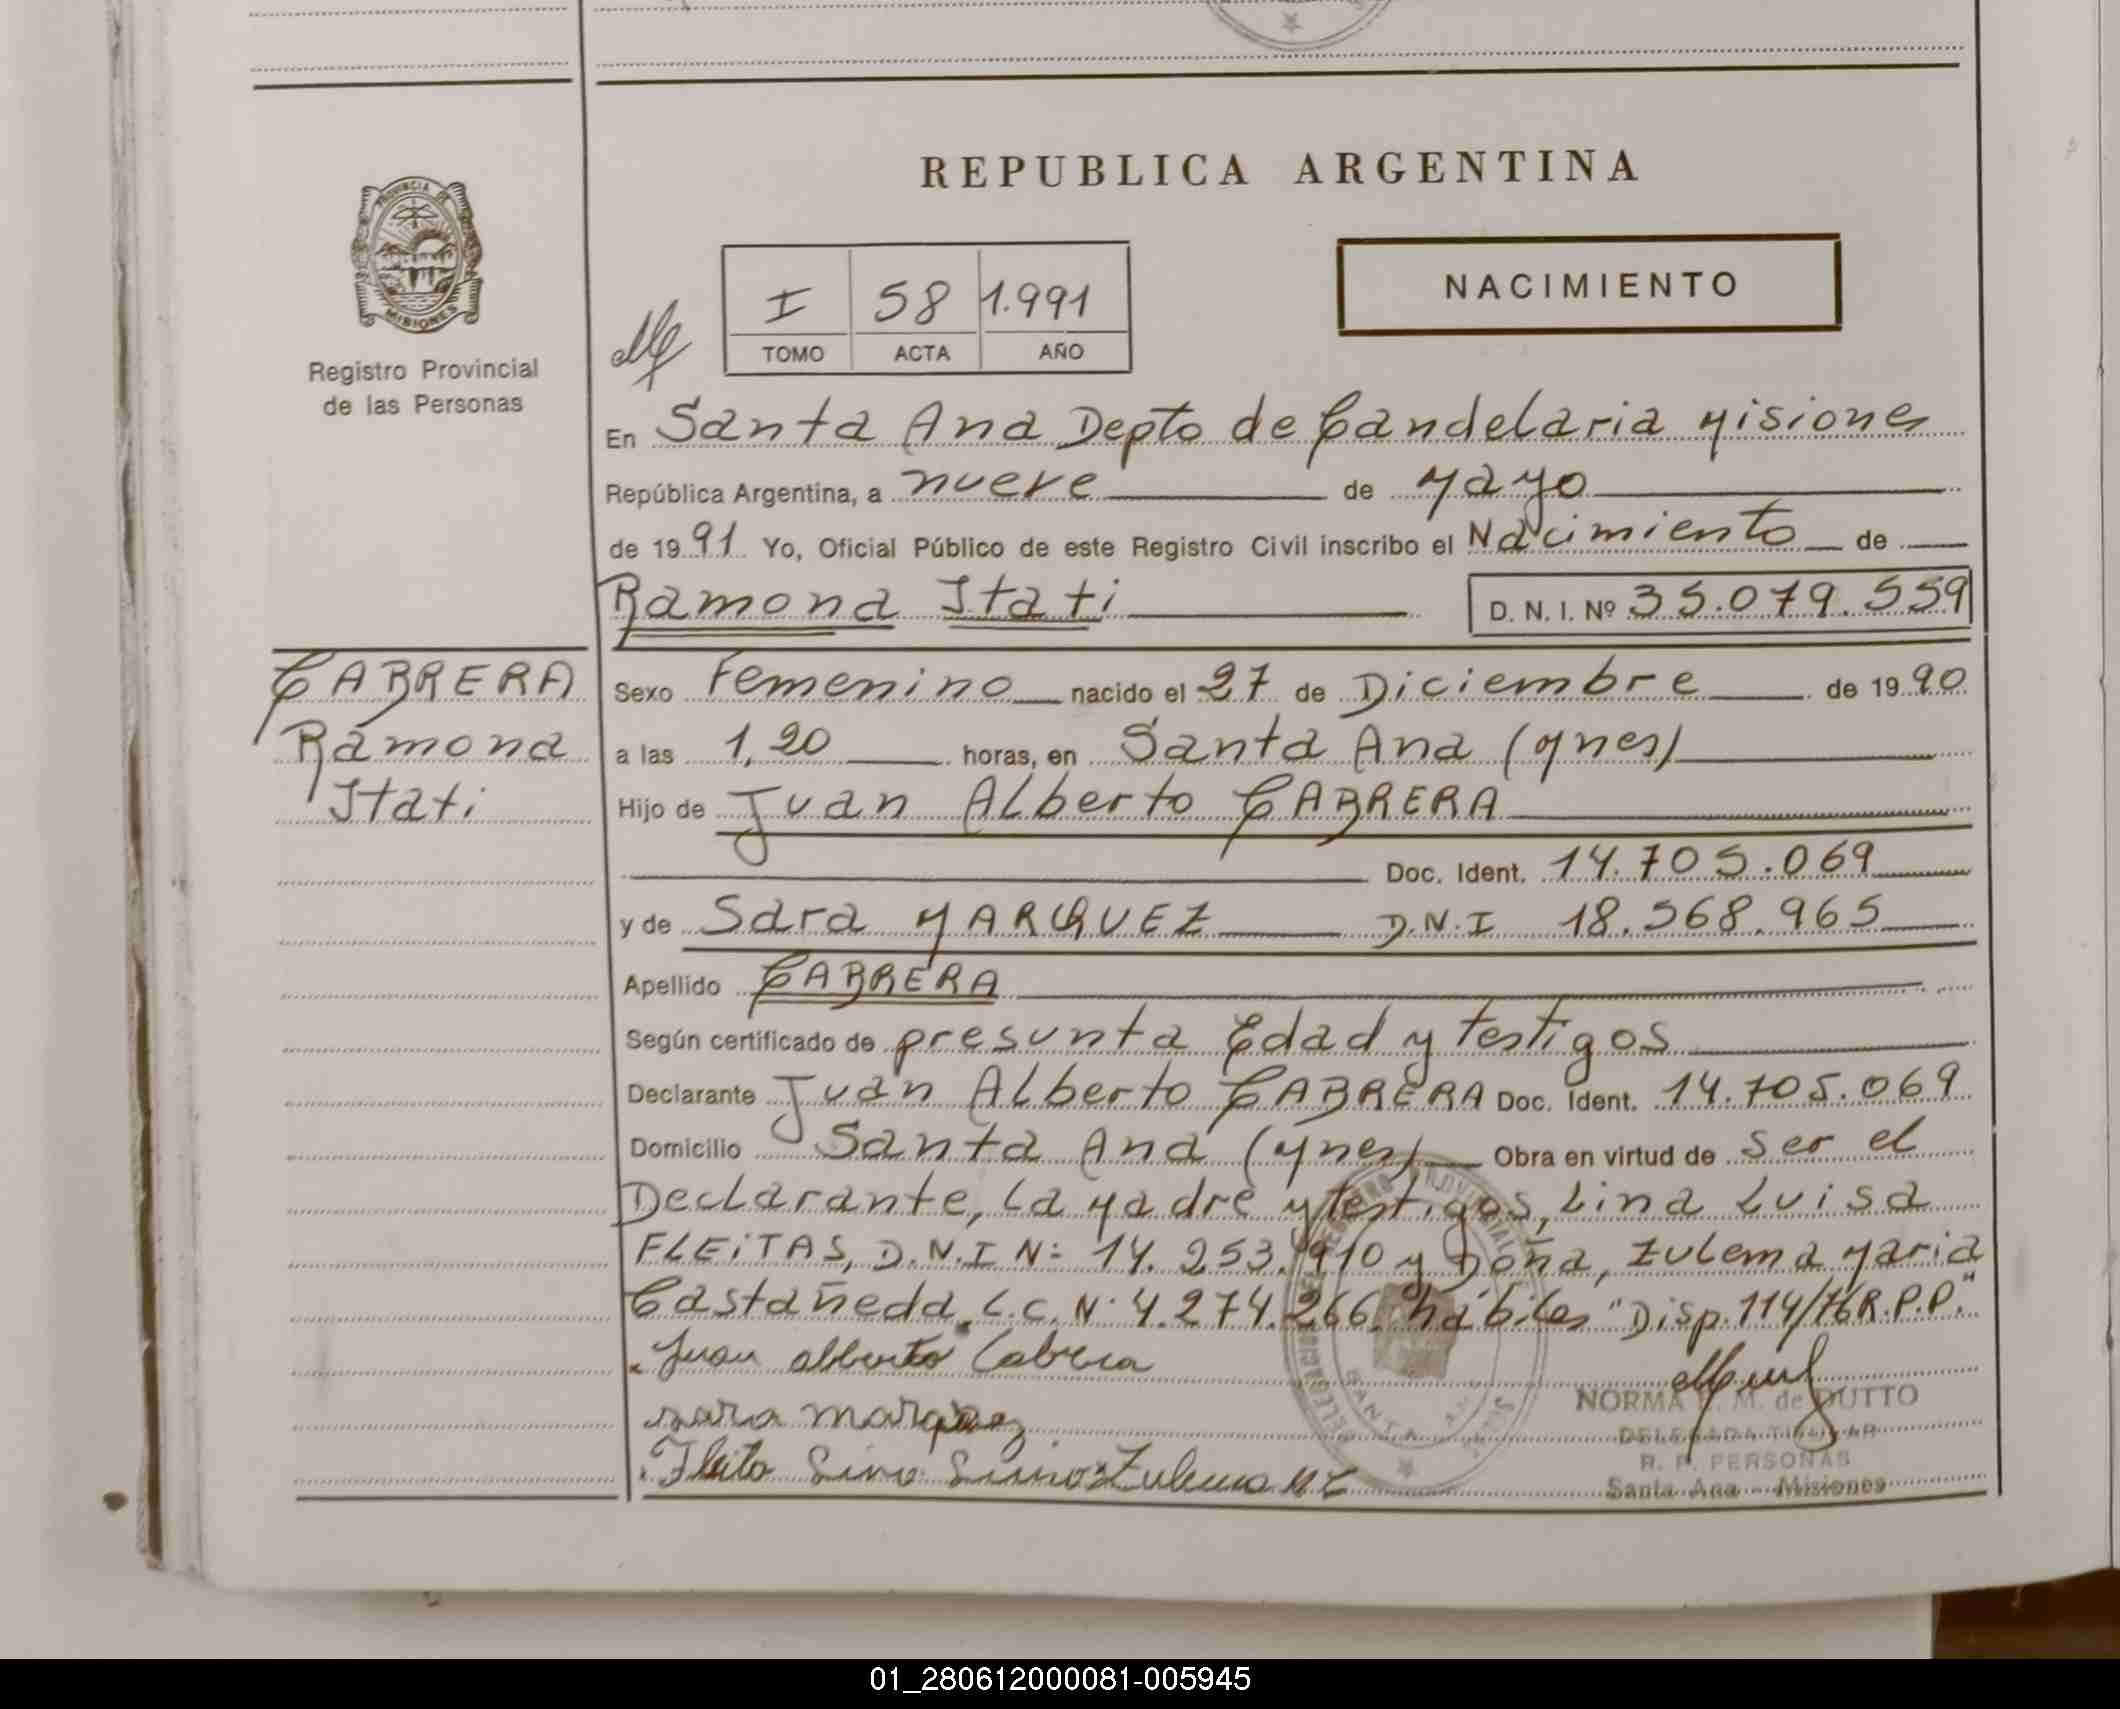 REPUBLICA ARGENTINA
NACIMIENTO
PROVINCIA DE
MISIONES
Registro Provincial
de las Personas
I 58 1.991
TOMO ACTA AÑO
En Santa Ana Depto de Candelaria Misiones
República Argentina, a nueve de Mayo
de 1991 Yo, Oficial Público de este Registro Civil inscribo el Nacimiento de
Ramona Itati D. N. I. Nº 35.079.559
CABRERA
Ramona
Itati
Sexo Femenino nacido el 27 de Diciembre de 1990
a las 1,20 horas, en Santa Ana (Mnes)
Hijo de Juan Alberto CABRERA
Doc. Ident. 14.705.069
y de Sara MARQUEZ D.N.I 18.568.965
Apellido CABRERA
Según certificado de presunta Edad y testigos
Declarante Juan Alberto CABRERA Doc. Ident. 14.705.069
Domicilio Santa Ana (Mnes) Obra en virtud de ser el
Declarante, la Madre y testigos, Lina Luisa
FLEiTAS, D.N.I N: 14.253.910 y Doña, Zulema Maria
Castañeda, L.C. N: 4.274.266. habiles "Disp.114/76 R.P.P."
Juan Alberto Cabrera
sara marquez
NORMA M. de DUTTO
DELEGADA TITULAR
R. P. PERSONAS
Santa Ana - Misiones
Zulema
01_280612000081-005945